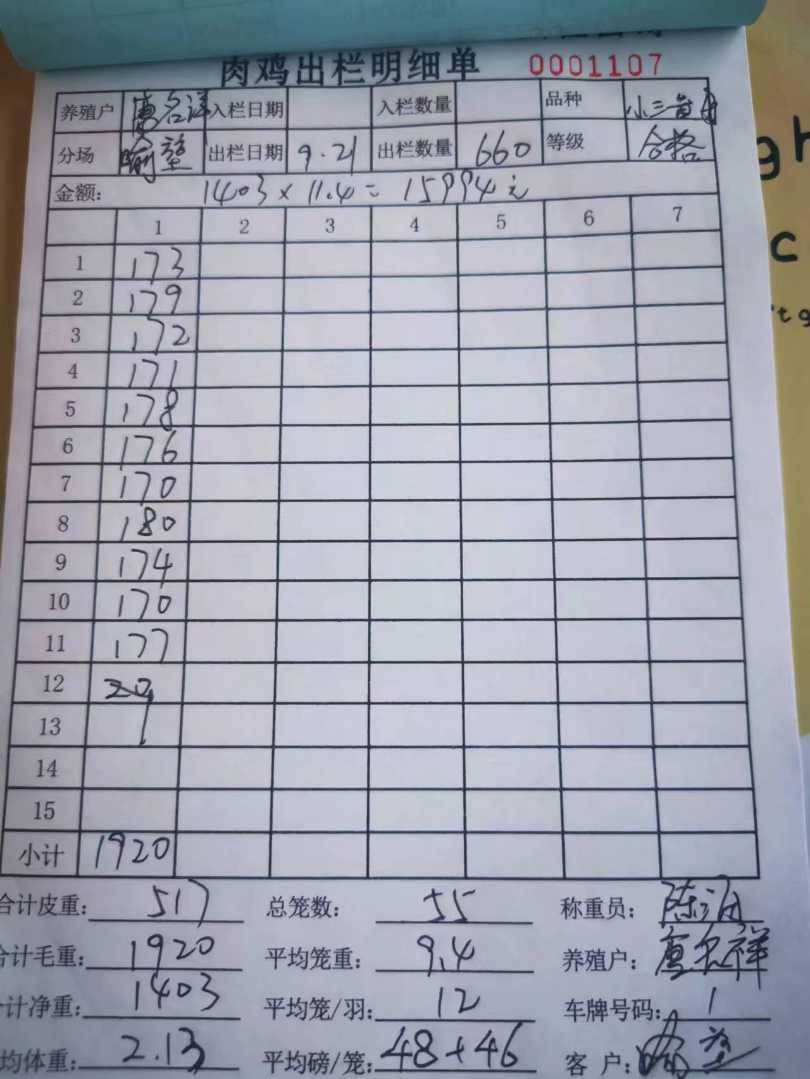 肉鸡出栏明细单 0001107
养殖户 唐名祥 入栏日期 入栏数量 品种
分场 出栏日期 9.21 出栏数量 660 等级 合格
金额: 1403 × 11.4 = 15994元
1 2 3 4 5 6 7
1 173
2 179
3 172
4 171
5 178
6 176
7 170
8 180
9 174
10 170
11 177
12
13
14
15
小计 1920
合计皮重: 517 总笼数: 55 称重员:
合计毛重: 1920 平均笼重: 9.4 养殖户: 唐名祥
计净重: 1403 平均笼/羽: 12 车牌号码: 1
均体重: 2.13 平均磅/笼: 48+46 客 户:
gh
c
'tg